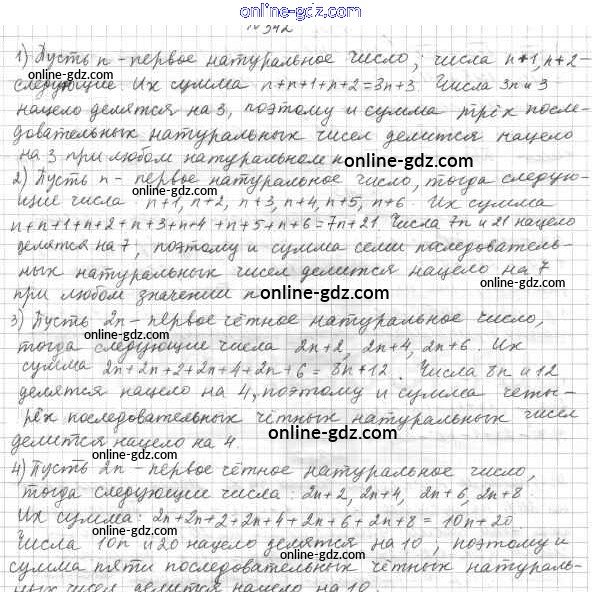 online-gdz.com
№ 342
1) Пусть n - первое натуральное число, числа n+1, n+2 -
online-gdz.com
следующие. Их сумма n+n+1+n+2=3n+3. Числа 3n и 3
online-gdz.com
нацело делятся на 3, поэтому и сумма трёх после-
довательных натуральных чисел делится нацело
на 3 при любом натуральном n.
online-gdz.com
2) Пусть n - первое натуральное число, тогда следую-
online-gdz.com
щие числа n+1, n+2, n+3, n+4, n+5, n+6. Их сумма
online-gdz.com
n+n+1+n+2+n+3+n+4+n+5+n+6=7n+21. Числа 7n и 21 нацело
делятся на 7, поэтому и сумма семи последователь-
ных натуральных чисел делится нацело на 7
online-gdz.com
при любом значении n.
online-gdz.com
3) Пусть 2n - первое чётное натуральное число,
тогда следующие числа 2n+2, 2n+4, 2n+6. Их
online-gdz.com
сумма 2n+2n+2+2n+4+2n+6=8n+12. Числа 8n и 12
online-gdz.com
делятся нацело на 4, поэтому и сумма четы-
рёх последовательных чётных натуральных чисел
делится нацело на 4.
online-gdz.com
4) Пусть 2n - первое чётное натуральное число,
тогда следующие числа: 2n+2, 2n+4, 2n+6, 2n+8.
online-gdz.com
online-gdz.com
Их сумма: 2n+2n+2+2n+4+2n+6+2n+8=10n+20.
Числа 10n и 20 нацело делятся на 10, поэтому и
online-gdz.com
сумма пяти последовательных чётных натураль-
ных чисел делится нацело на 10.